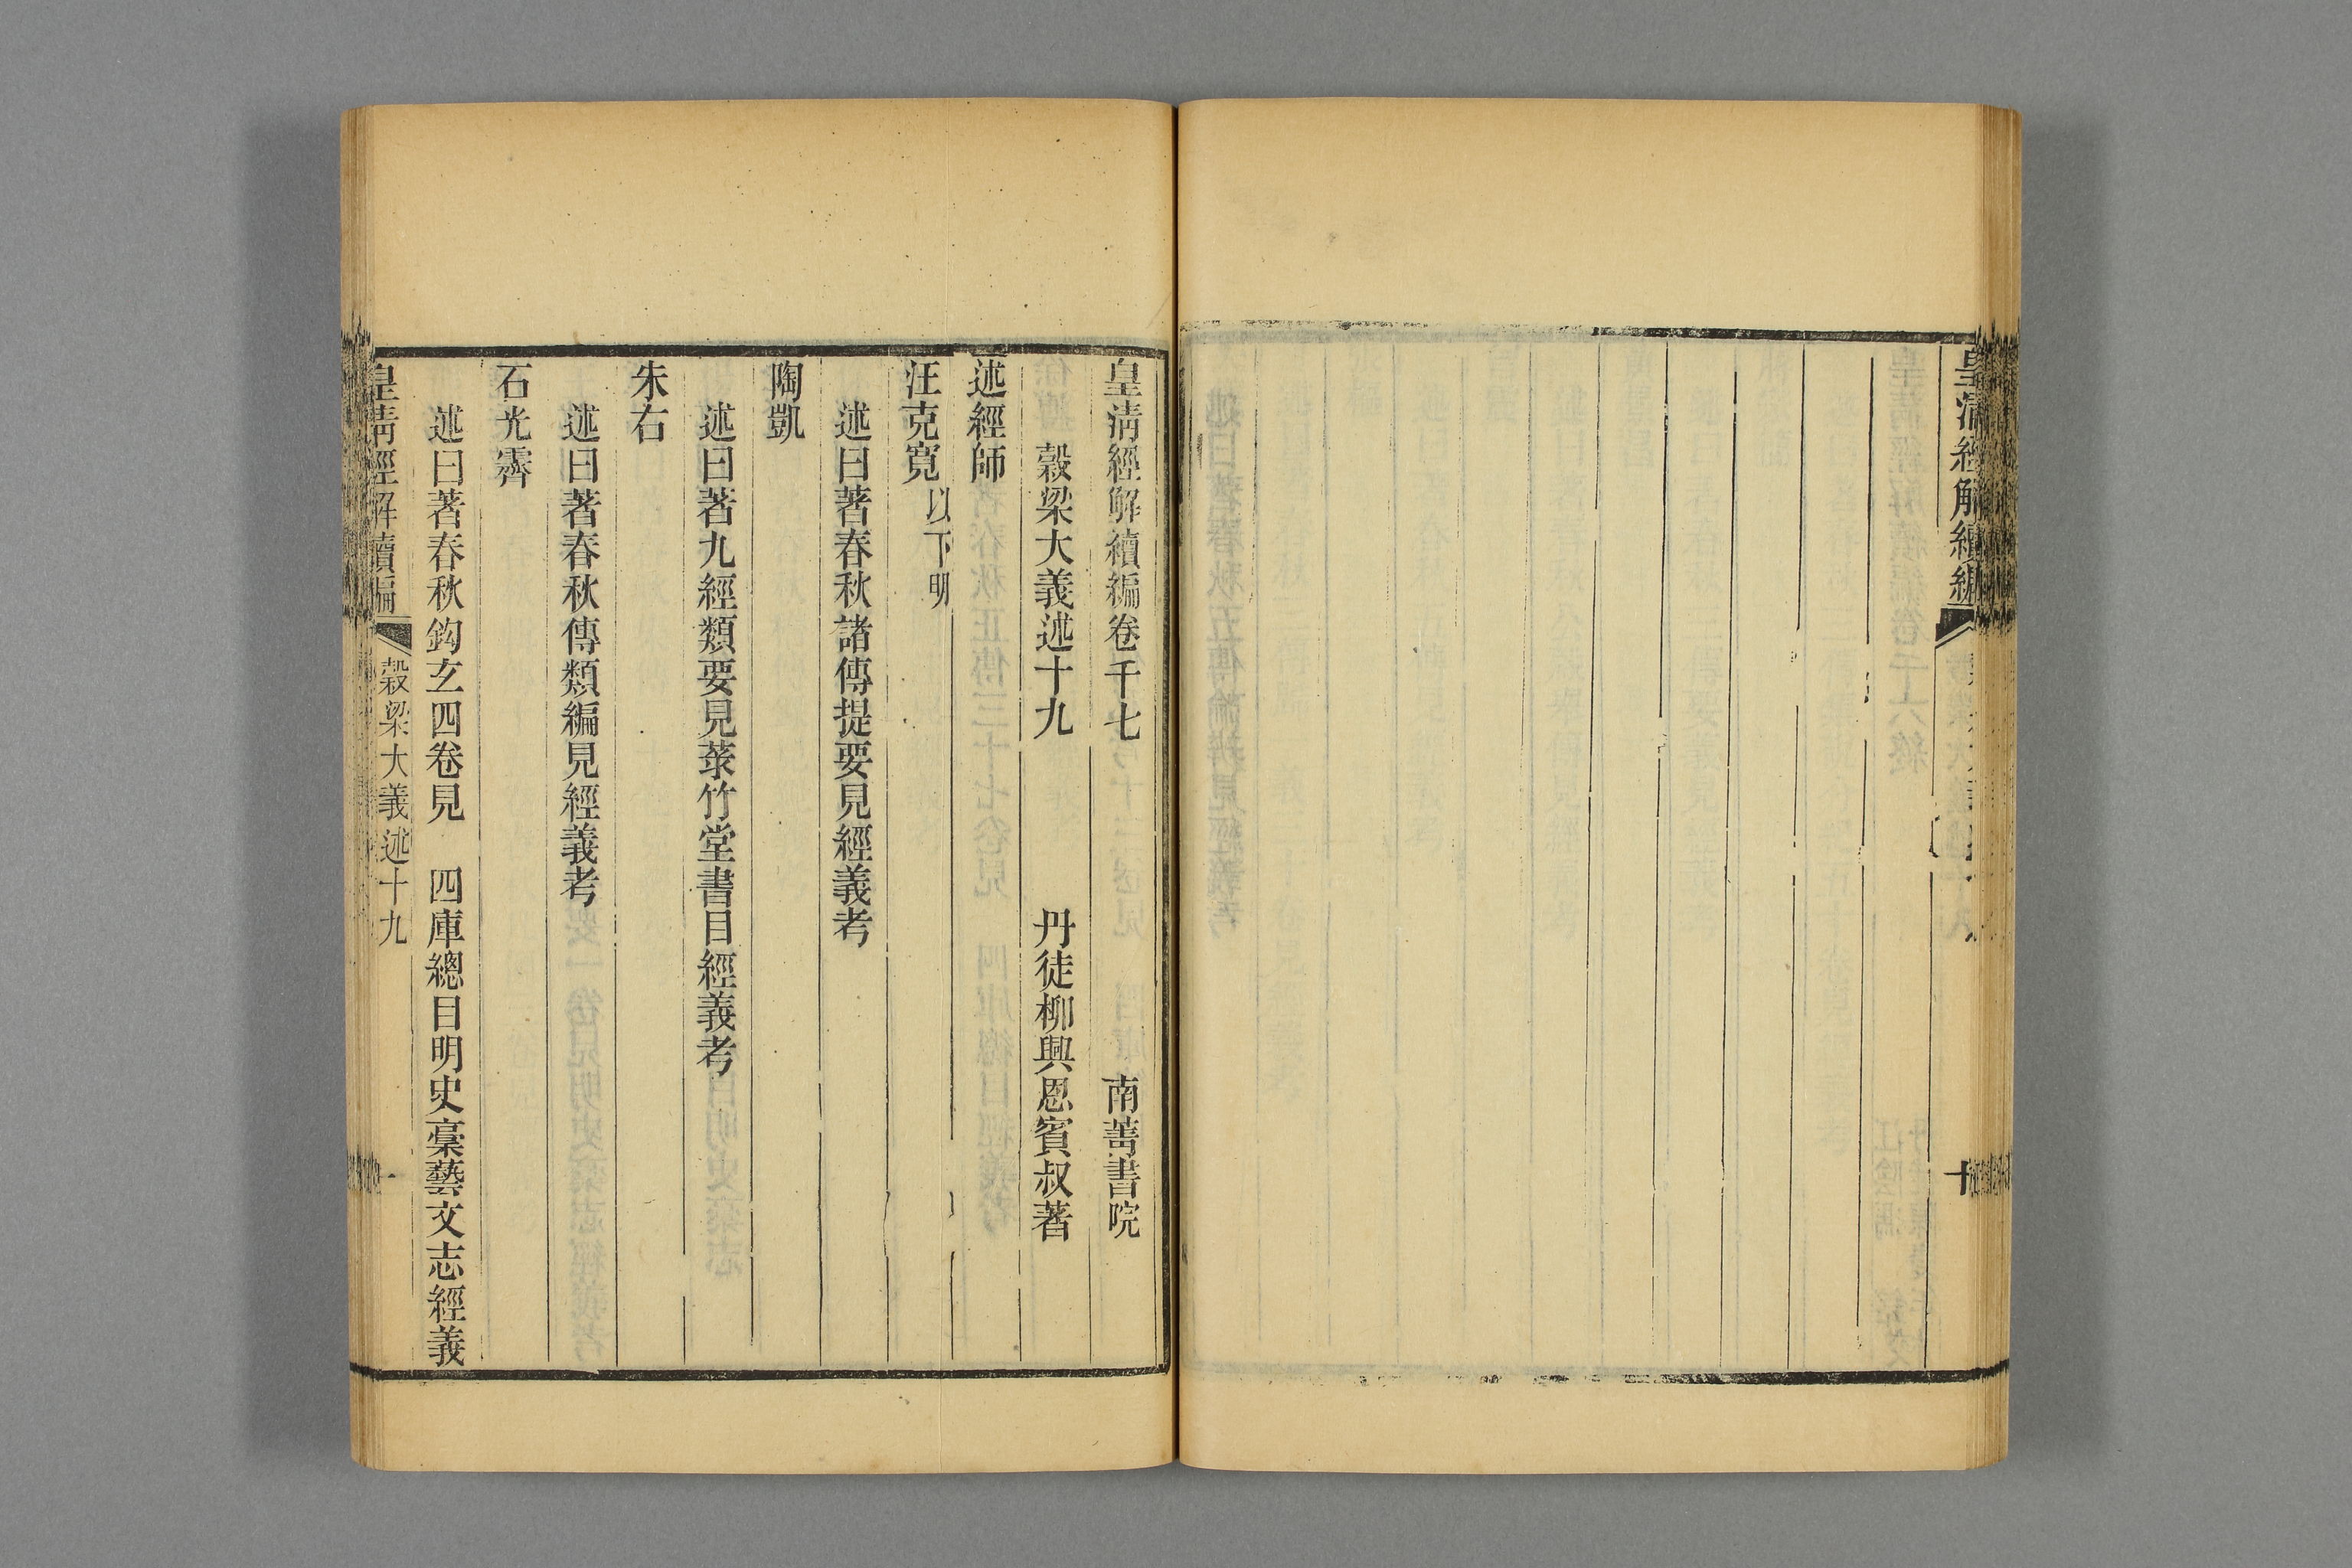 皇清經解續編
十
皇清經解續編卷千七 南菁書院
穀梁大義述十九 丹徒柳興恩賓叔著
述經師
汪克寬以下明
述曰著春秋諸傳提要見經義考
陶凱
述曰著九經類要見菉竹堂書目經義考
朱右
述曰著春秋傳類編見經義考
石光霽
述曰著春秋鈎玄四卷見 四庫總目明史稾藝文志經義
皇清經解續編 穀梁大義述十九 一